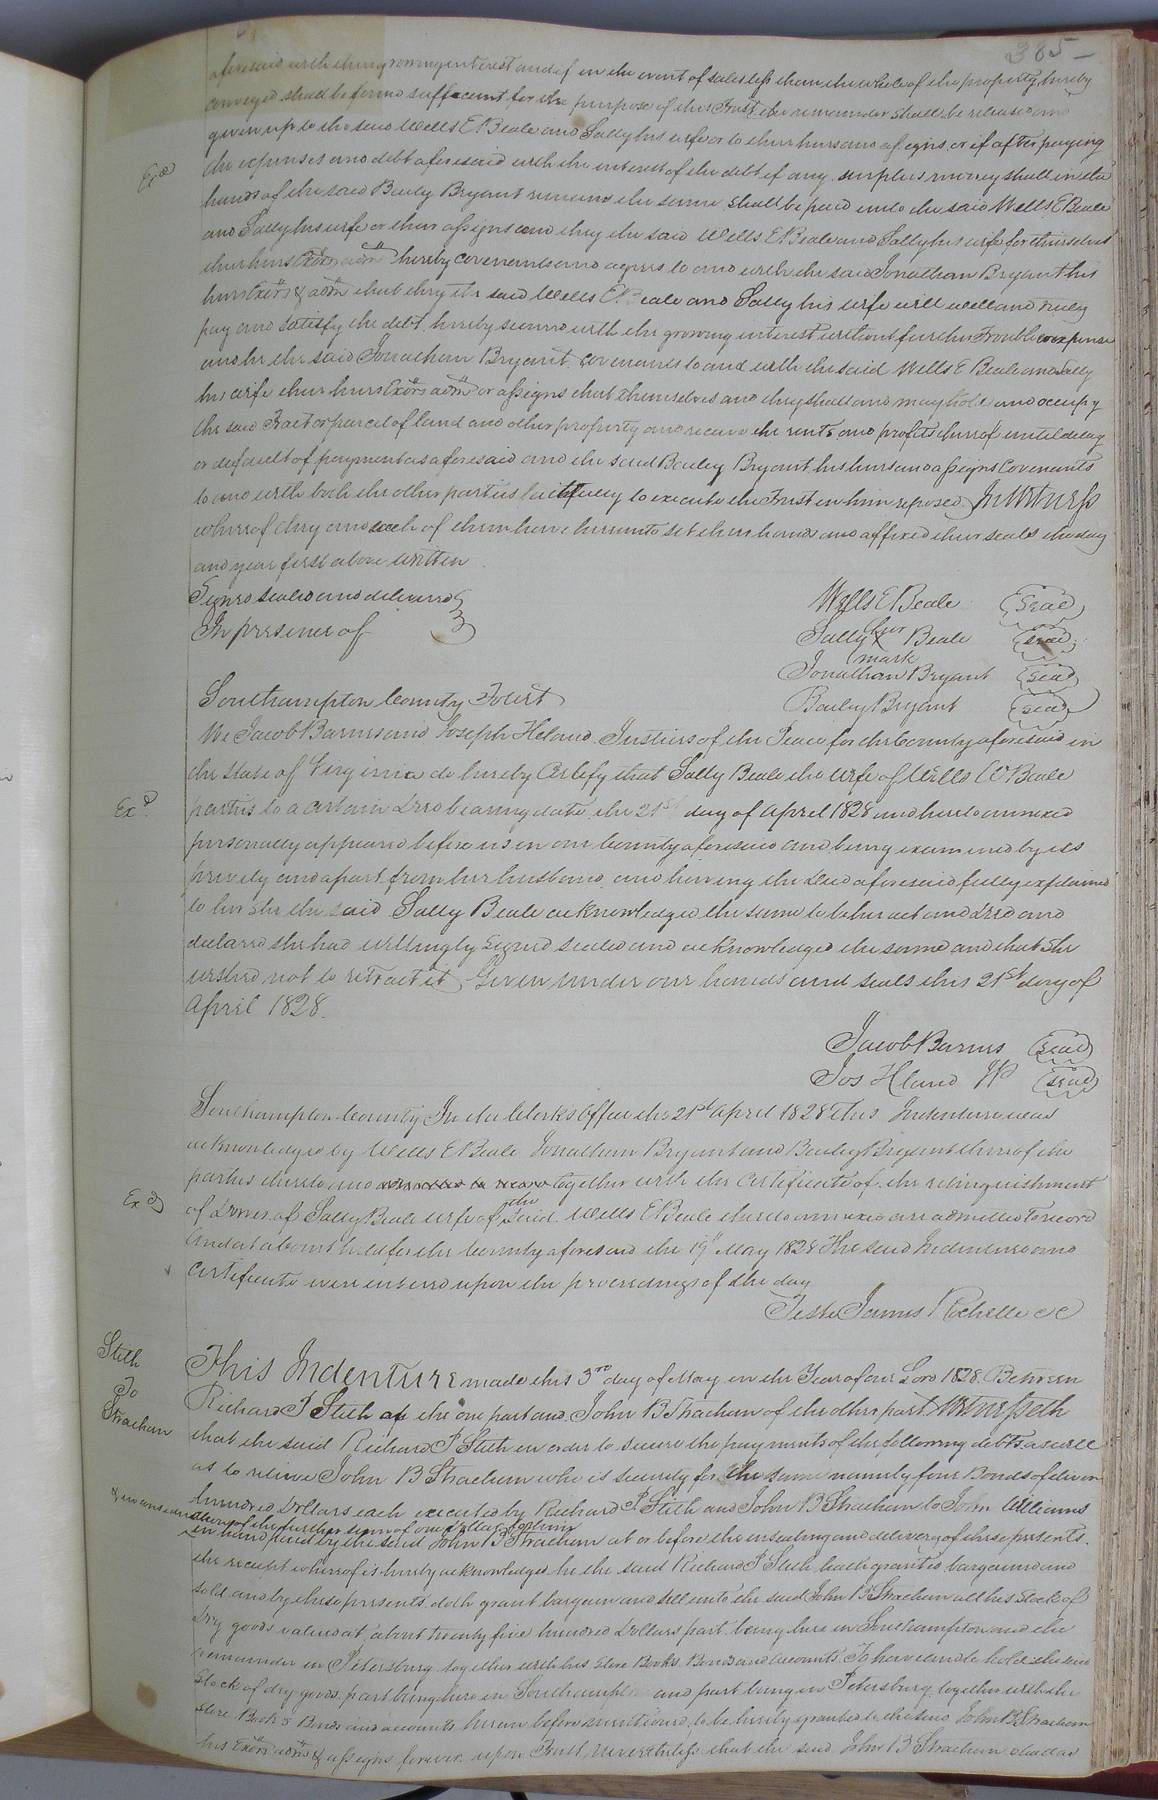 385
aforesaid with the growing interest and if in the event of sale less than the whole of the property hereby
conveyed shall be found sufficient for the purpose of this Trust the remainder shall be released and
given up to the said Wells E Beale and Sally his wife or to their heirs and assigns or if after paying
the expenses and debt aforesaid with the interest of the debt if any surplus money shall in the
Exd
hands of the said Bailey Bryant remain the same shall be paid unto the said Wells E Beale
and Sally his wife or their assigns and they the said Wells E Beale and Sally his wife for themselves
their heirs Exõrs admrs hereby covenants and agrees to and with the said Jonathan Bryant his
heirs Exõrs & admrs that they the said Wells E Beale and Sally his wife will well and truly
pay and satisfy the debt hereby secured with the growing interest without further Trouble or expense
and he the said Jonathan Bryant covenants to and with the said Wells E Beale and Sally
his wife their heirs Exõrs admrs or assigns that themselves and they shall and may hold and occupy
the said Tract or parcel of land and other property and receive the rents and profits thereof until delay
or default of payment as aforesaid and the said Bailey Bryant his heirs and assigns Covenants
to and with both the other parties faithfully to execute the Trust in him reposed. In Witness
whereof they and each of them have hereunto set their hands and affixed their seals the day
and year first above written
Signed sealed and delivered
In presence of
Wells E Beale (Seal)
Sally her X mark Beale (Seal)
Jonathan Bryant (Seal)
Bailey Bryant (Seal)
Southampton County Towit
We Jacob Barnes and Joseph Holand Justices of the Peace for the County aforesaid in
the State of Virginia do hereby Certify that Sally Beale the wife of Wells E Beale
Exd
parties to a certain Deed bearing date the 21st day of April 1828 and hereto annexed
personally appeared before us in our County aforesaid and being examined by us
privily and apart from her husband and having the Deed aforesaid fully explained
to her she the said Sally Beale acknowledged the same to be her act and Deed and
declared she had willingly signed sealed and acknowledged the same and that She
wished not to retract it Given under our hands and seals this 21st day of
April 1828.
Jacob Barnes (Seal)
Jos Holand JP (Seal)
Southampton County In the Clerks Office the 21st April 1828 This Indenture was
acknowledged by Wells E Beale Jonathan Bryant and Bailey Bryant three of the
parties thereto and together with the Certificate of the relinquishment
Exd
of Dower of Sally Beale wife of the Said Wells E Beale thereto annexed are admitted to record
And at a Court held for the County aforesaid the 19th May 1828 The said Indenture and
Certificate were entered upon the proceedings of the day
Teste James Rochelle CC
Stith
To
Strachan
This Indenture made this 3rd day of May in the Year of our Lord 1828. Between
Richard P Stith of the one part and John B Strachan of the other part Witnesseth
that the said Richard P Stith in order to secure the payments of the following debts as well
as to relieve John B Strachan who is security for the same namely four Bonds of eleven
hundred Dollars each executed by Richard P Stith and John B Strachan to John Williams
& in consideration of the further sum of one Dollar
in hand paid by the said John B Strachan at or before the ensealing and delivery of these presents.
the receipt whereof is hereby acknowledged he the said Richard P Stith hath granted bargained and
sold and by these presents doth grant bargain and sell unto the said John B Strachan all his Stock of
Dry goods valued at about twenty five hundred Dollars part being here in Southampton and the
remainder in Petersburg together with his Store Books Bonds and accounts. To have and to hold the said
Stock of dry goods part being here in Southampton and part being in Petersburg together with the
Store Books Bonds and accounts herein before mentioned to be hereby granted to the said John B Strachan
his Exõrs admrs & assigns forever upon Trust nevertheless that the said John B Strachan